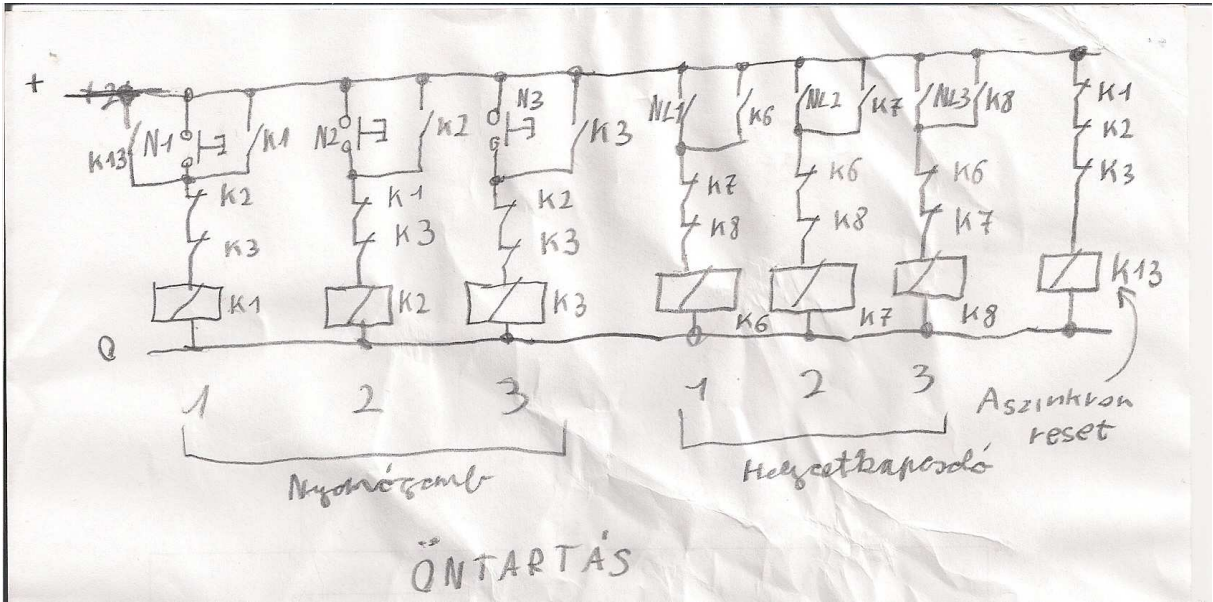 +
K13
N1
K1
N2
K2
N3
K3
NL1
K6
NL2
K7
NL3
K8
K1
K2
K3
K2
K3
K1
K3
K2
K3
K7
K8
K6
K8
K6
K7
K1
K2
K3
K6
K7
K8
K13
0
1
2
3
1
2
3
Aszinkron
reset
Nyomógomb
Helyzetkapcsoló
ÖNTARTÁS